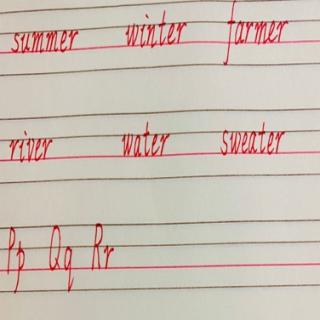 summer winter farmer
river water sweater
Pp Qq Rr